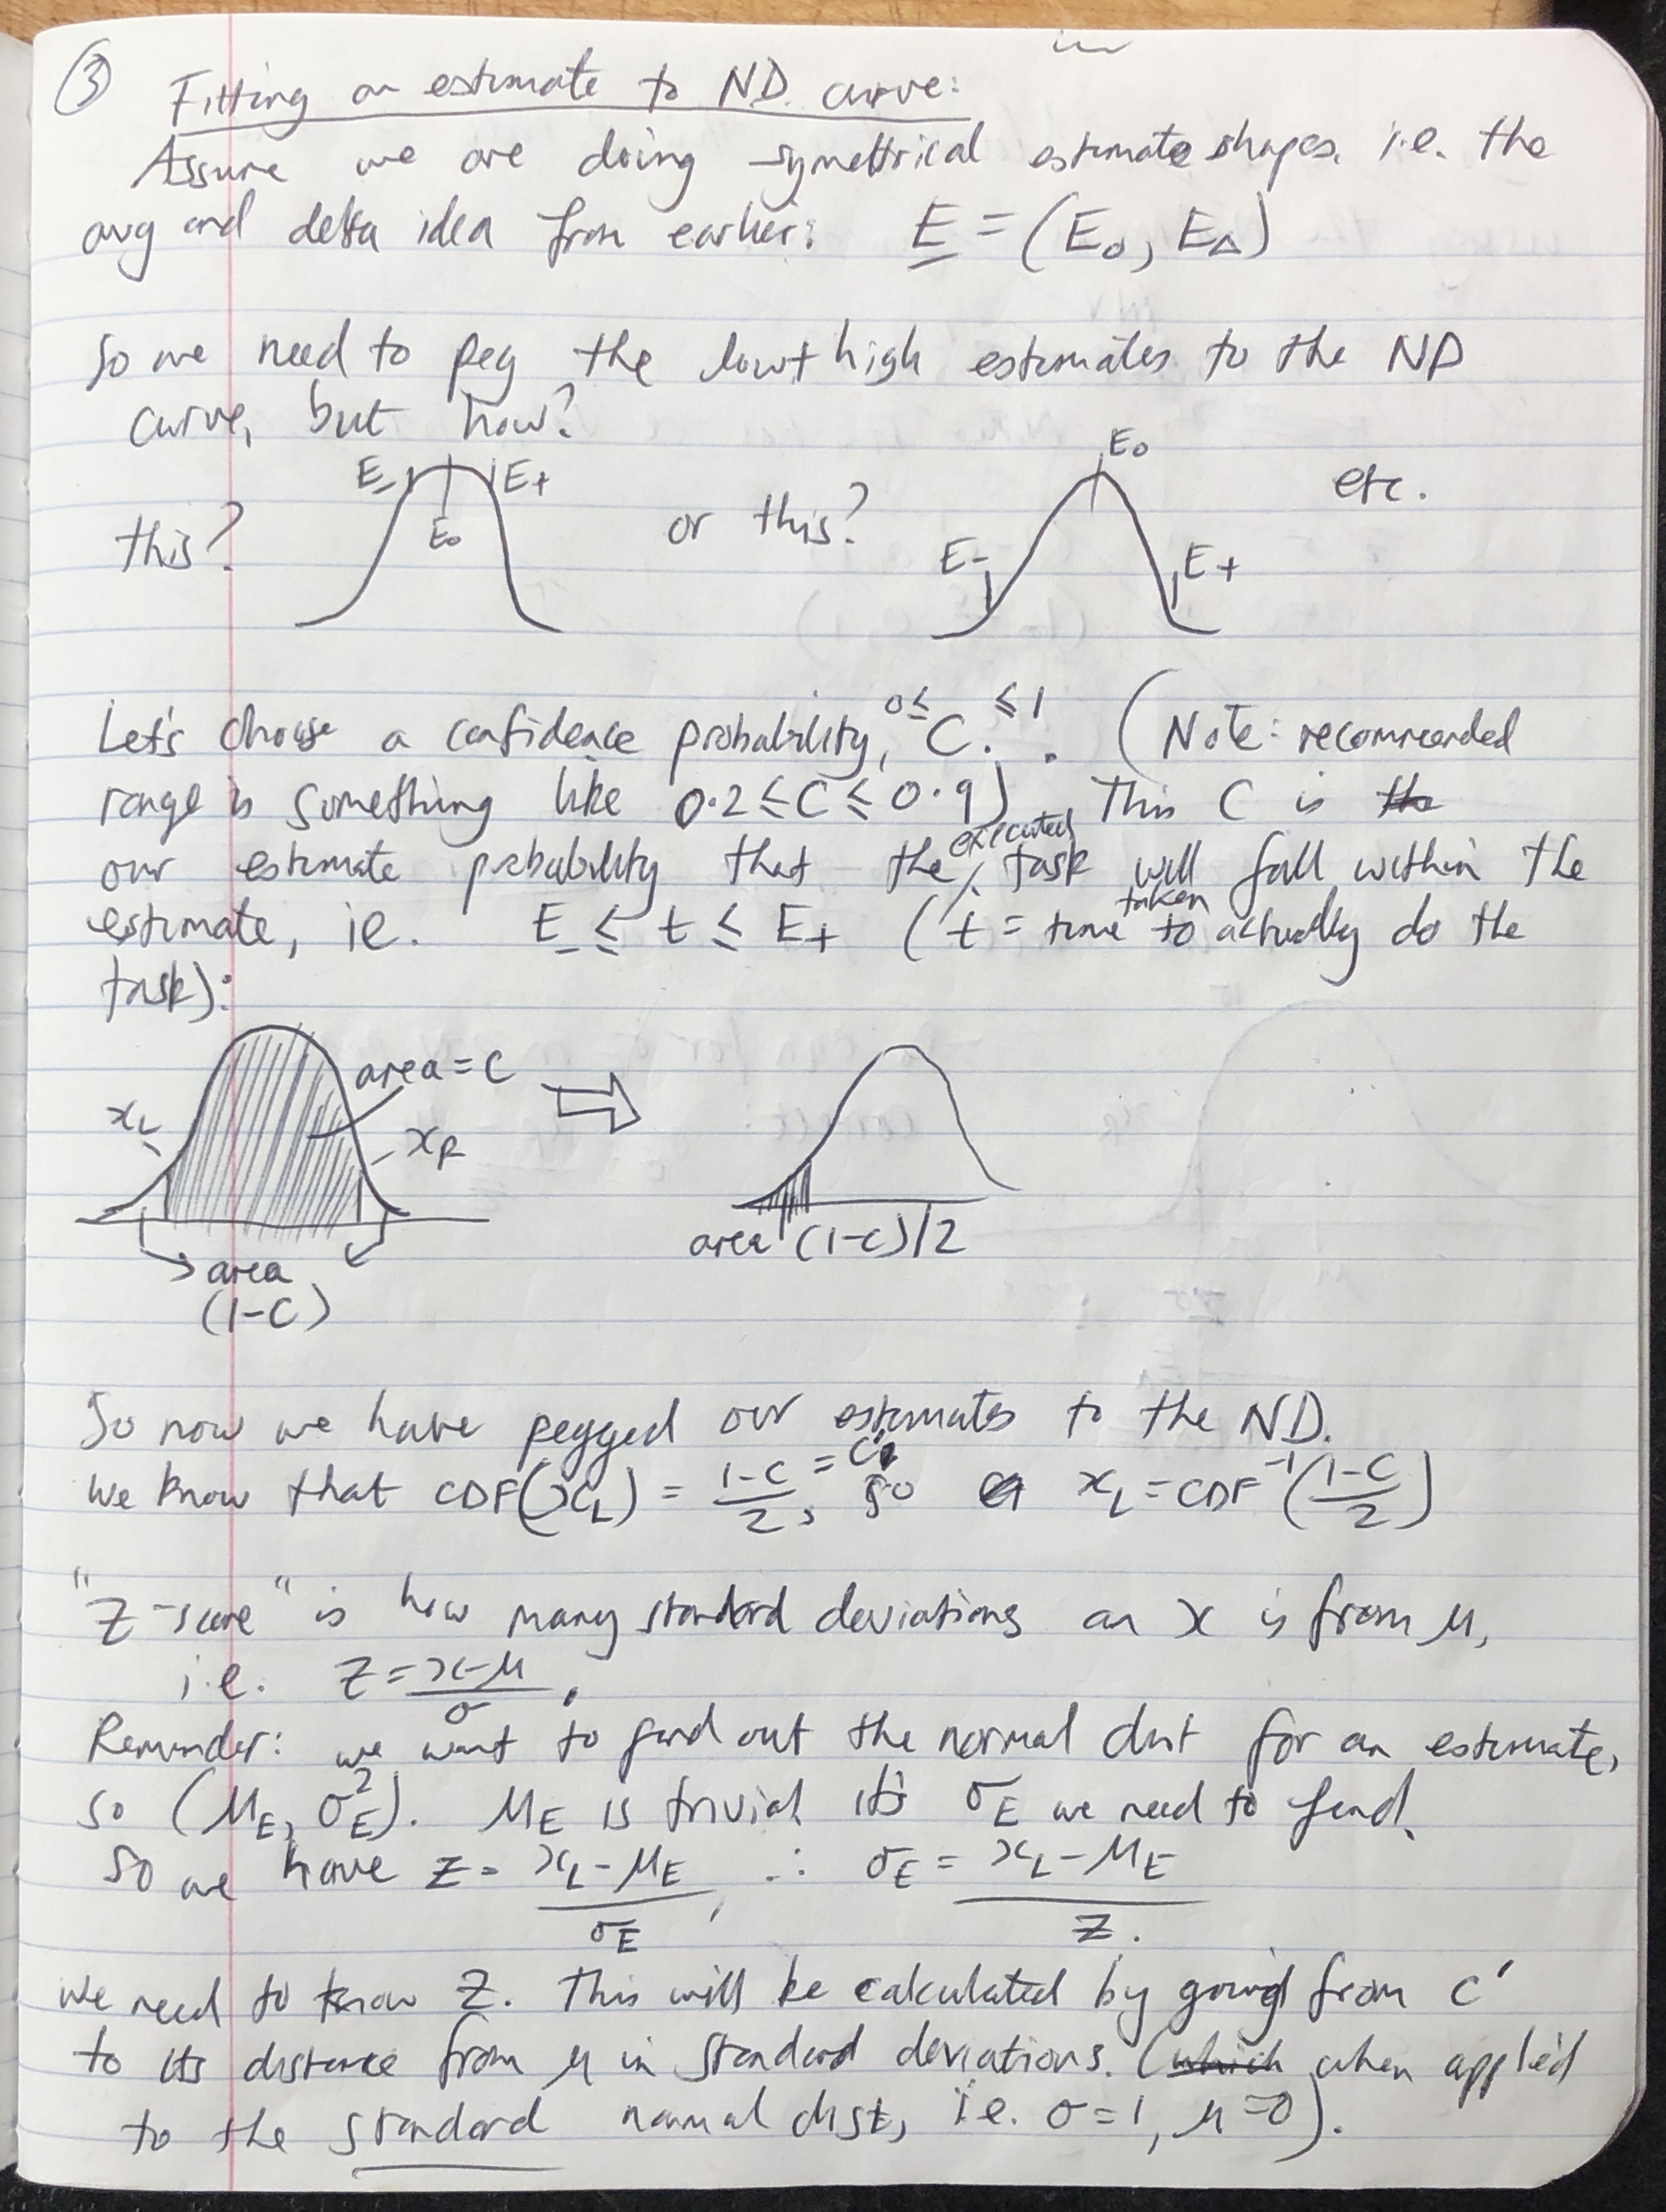 ③ Fitting an estimate to ND. curve:
Assume we are doing symettrical estimate shapes. i.e. the
avg and delta idea from earlier: E = (E₀, E△)
So we need to peg the low + high estimates to the ND
curve, but how?
this? E₋ E₀ E₊ or this? E₋ E₀ E₊ etc.
Let's choose a confidence probability, 0≤ C. ≤1 . (Note: recommended
range is something like 0.2 ≤ C ≤ 0.9) This C is
our estimate probability that the executed task will fall within the
estimate, ie. E₋ ≤ t ≤ E₊ (t = time taken to actually do the
task):
x_L area = C x_R ⇒
area (1-C)/2
area
(1-C)
So now we have pegged our estimates to the ND.
We know that CDF(x_L) = (1-C)/2 = C', so x_L = CDF⁻¹((1-C)/2)
"Z-score" is how many standard deviations an x is from μ,
i.e. Z = (x-μ)/σ.
Reminder: we want to find out the normal dist for an estimate,
so (μ_E, σ²_E). μ_E is trivial it's σ_E we need to find.
So we have Z = (x_L - μ_E)/σ_E, ∴ σ_E = (x_L - μ_E)/Z.
We need to know Z. This will be calculated by going from C'
to its distance from μ in standard deviations. (which when applied
to the standard normal dist, i.e. σ=1, μ=0).